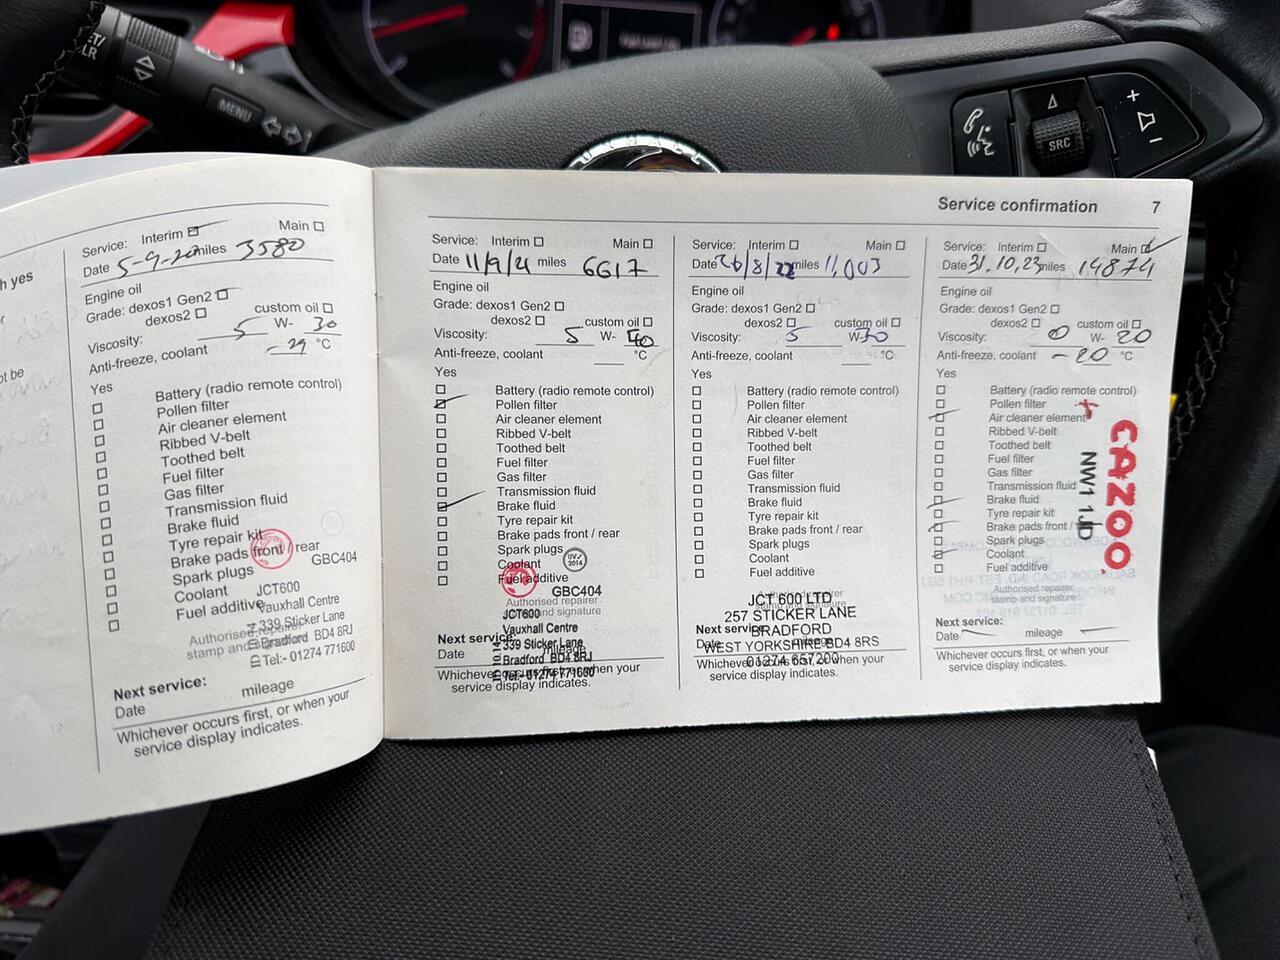 MENU
SRC
h yes
or
ot be
Service: Interim Main
Date 5-9-20 miles 3580
Engine oil
Grade: dexos1 Gen2
dexos2 custom oil
Viscosity: 5 W- 30
Anti-freeze, coolant -29 °C
Yes
Battery (radio remote control)
Pollen filter
Air cleaner element
Ribbed V-belt
Toothed belt
Fuel filter
Gas filter
Transmission fluid
Brake fluid
Tyre repair kit
Brake pads front / rear
Spark plugs
Coolant
Fuel additive
GBC404
JCT600
Vauxhall Centre
339 Sticker Lane
Bradford BD4 8RJ
Tel:- 01274 771600
Authorised repairer
stamp and signature
Next service:
Date mileage
Whichever occurs first, or when your
service display indicates.
Service confirmation 7
Service: Interim Main
Date 11/9/21 miles 6617
Engine oil
Grade: dexos1 Gen2
dexos2 custom oil
Viscosity: 5 W- 40
Anti-freeze, coolant °C
Yes
Battery (radio remote control)
Pollen filter
Air cleaner element
Ribbed V-belt
Toothed belt
Fuel filter
Gas filter
Transmission fluid
Brake fluid
Tyre repair kit
Brake pads front / rear
Spark plugs
Coolant
Fuel additive
GBC404
Authorised repairer
stamp and signature
JCT600
Vauxhall Centre
339 Sticker Lane
Bradford BD4 8RJ
Tel:- 01274 771600
Next service:
Date mileage
Whichever occurs first, or when your
service display indicates.
Service: Interim Main
Date 26/8/22 miles 11,003
Engine oil
Grade: dexos1 Gen2
dexos2 custom oil
Viscosity: 5 W- 30
Anti-freeze, coolant °C
Yes
Battery (radio remote control)
Pollen filter
Air cleaner element
Ribbed V-belt
Toothed belt
Fuel filter
Gas filter
Transmission fluid
Brake fluid
Tyre repair kit
Brake pads front / rear
Spark plugs
Coolant
Fuel additive
JCT 600 LTD
257 STICKER LANE
BRADFORD
WEST YORKSHIRE BD4 8RS
01274 657200
Next service:
Date mileage
Whichever occurs first, or when your
service display indicates.
Service: Interim Main
Date 31.10.23 miles 14874
Engine oil
Grade: dexos1 Gen2
dexos2 custom oil
Viscosity: 0 W- 20
Anti-freeze, coolant -20 °C
Yes
Battery (radio remote control)
Pollen filter
Air cleaner element
Ribbed V-belt
Toothed belt
Fuel filter
Gas filter
Transmission fluid
Brake fluid
Tyre repair kit
Brake pads front /
Spark plugs
Coolant
Fuel additive
CAZOO
NW1 1JD
Authorised repairer
stamp and signature
Next service:
Date mileage
Whichever occurs first, or when your
service display indicates.